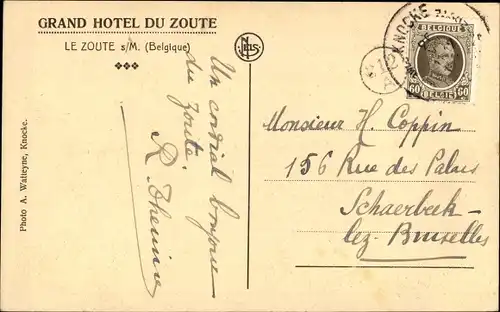 GRAND HOTEL DU ZOUTE
LE ZOUTE s/M. (Belgique)
NELS
Un cordial bonjour
du Zoute.
Photo A. Watteyne, Knocke.
KNOCKE
12
A
BELGIQUE
60 60
BELGIE
Monsieur H. Coppin
156 Rue des Palais
Schaerbeek -
lez - Bruxelles